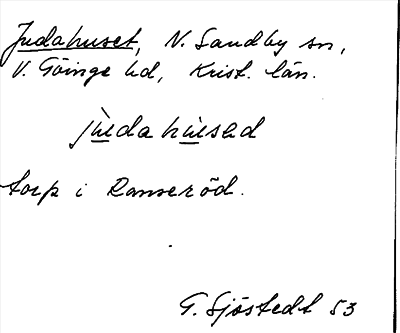 Judahuset, N. Sandby sn,
V. Göinge hd, Krist. län.
torp i Ranseröd.
G. Sjöstedt 53